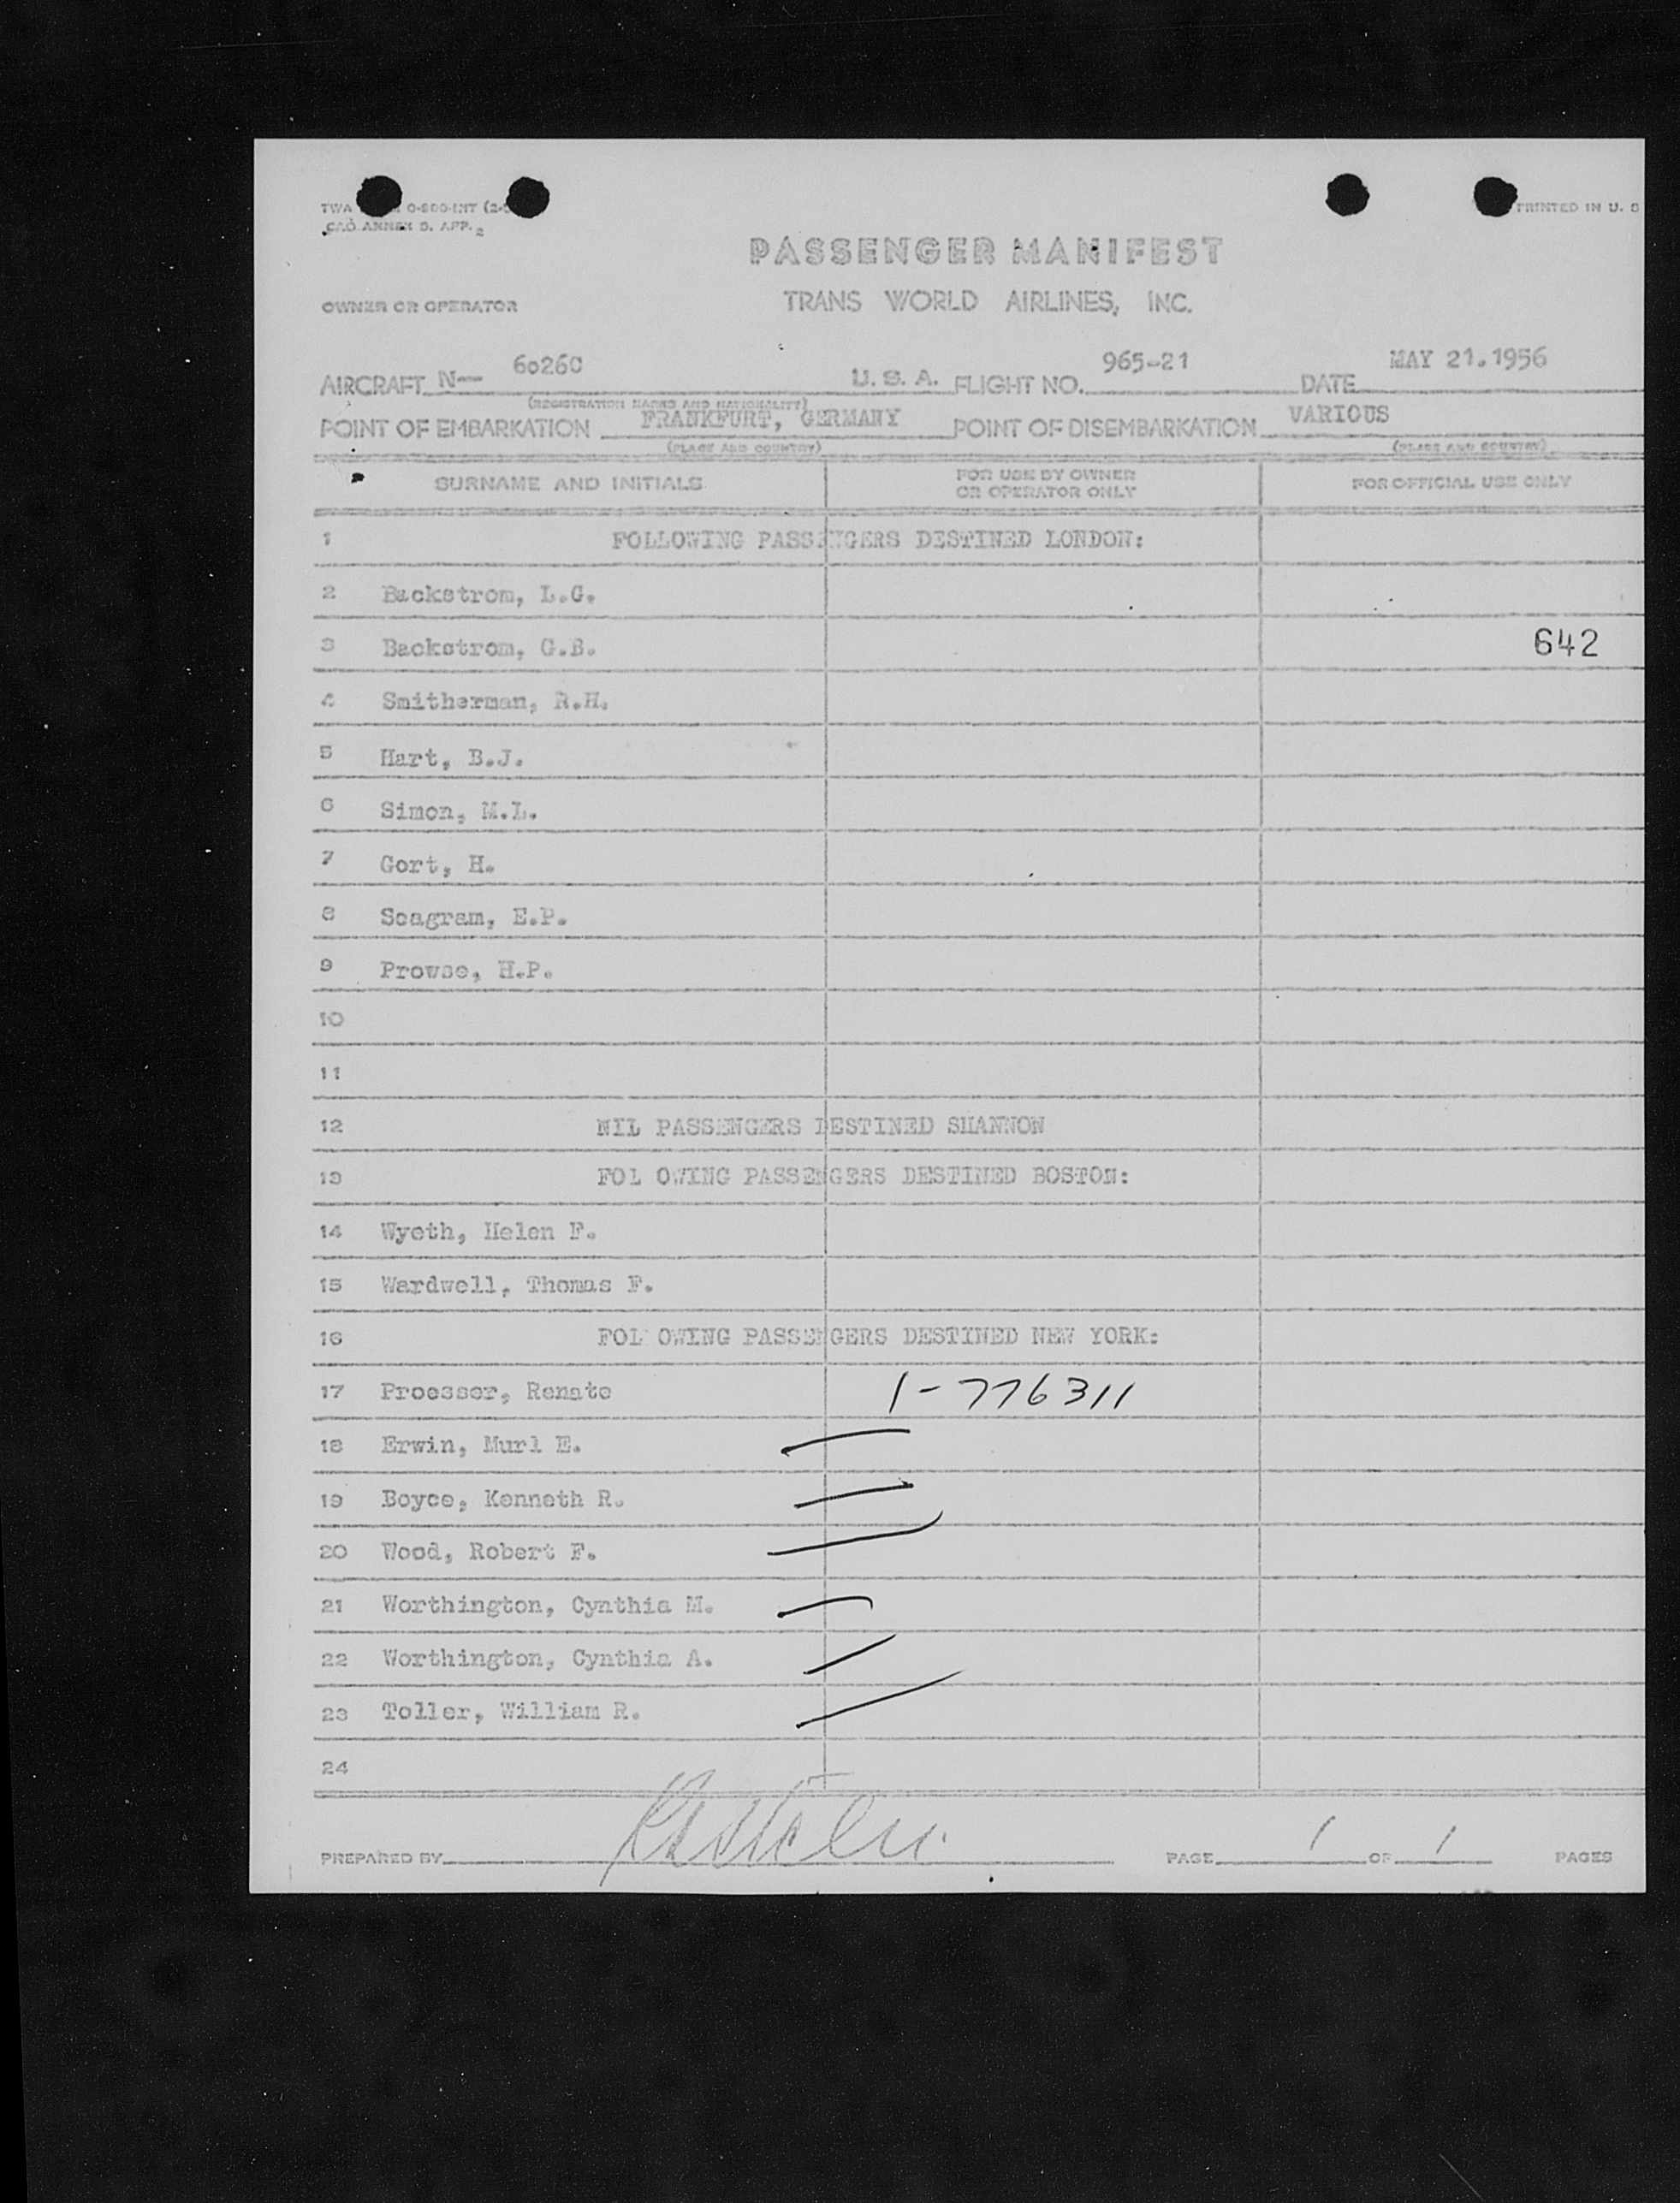 TWA 0-800-INT (2-
ICAO ANNEX 9. APP. 2
PRINTED IN U. S
PASSENGER MANIFEST
OWNER OR OPERATOR TRANS WORLD AIRLINES, INC.
AIRCRAFT N— 6026C U. S. A. FLIGHT NO. 965-21 DATE MAY 21.1956
(REGISTRATION MARKS AND NATIONALITY)
POINT OF EMBARKATION FRANKFURT, GERMANY POINT OF DISEMBARKATION VARIOUS
(PLACE AND COUNTRY) (PLACE AND COUNTRY)
SURNAME AND INITIALS FOR USE BY OWNER OR OPERATOR ONLY FOR OFFICIAL USE ONLY
1 FOLLOWING PASSENGERS DESTINED LONDON:
2 Backstrom, L.G.
3 Backstrom, G.B. 642
4 Smitherman, R.H.
5 Hart, B.J.
6 Simon, M.L.
7 Gort, H.
8 Seagram, E.P.
9 Prowse, H.P.
10
11
12 NIL PASSENGERS DESTINED SHANNON
13 FOL OWING PASSENGERS DESTINED BOSTON:
14 Wyeth, Helen F.
15 Wardwell, Thomas F.
16 FOL OWING PASSENGERS DESTINED NEW YORK:
17 Proesser, Renate 1-776311
18 Erwin, Murl E.
19 Boyce, Kenneth R.
20 Wood, Robert F.
21 Worthington, Cynthia M.
22 Worthington, Cynthia A.
23 Toller, William R.
24
PREPARED BY PAGE 1 OF 1 PAGES